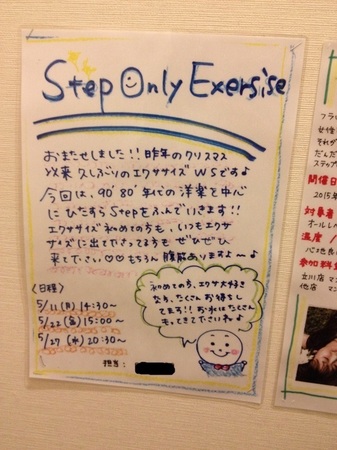 Step Only Exersise
おまたせしました!! 昨年のクリスマス
以来 久しぶりのエクササイズ WSですよ♪
今回は、90' 80'年代の洋楽を中心
にひたすらStepをふんでいきます!!
エクササイズ 初めての方も、いつもエクサ
サイズに出て下さってる方も ぜひぜひ
来て下さい♡♡ もちろん 腹筋ありますよ〜♪
〈日程〉
5/11(月) 14:30~
5/22(金) 15:00~
5/27(水) 20:30~
初めての方、エクササイズ好きな
方、たくさん お待ちし
てます!! お水はたくさん
もってきて下さいね♪
担当:
フラ
女性
それが
だんだ
ステップ
開催日
2015年
対象者
オールレベ
温度／
参加料金
立川店 マン
他店 マン